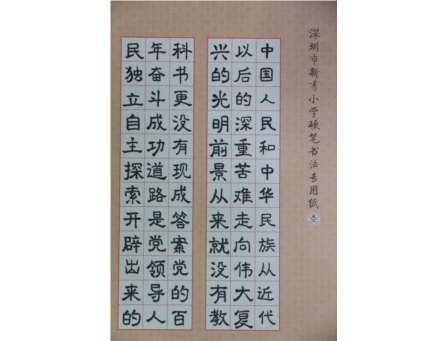 深圳市新秀小学硬笔书法专用纸
中国人民和中华民族从近代
以后的深重苦难走向伟大复
兴的光明前景从来就没有教
科书更没有现成答案党的百
年奋斗成功道路是党领导人
民独立自主探索开辟出来的